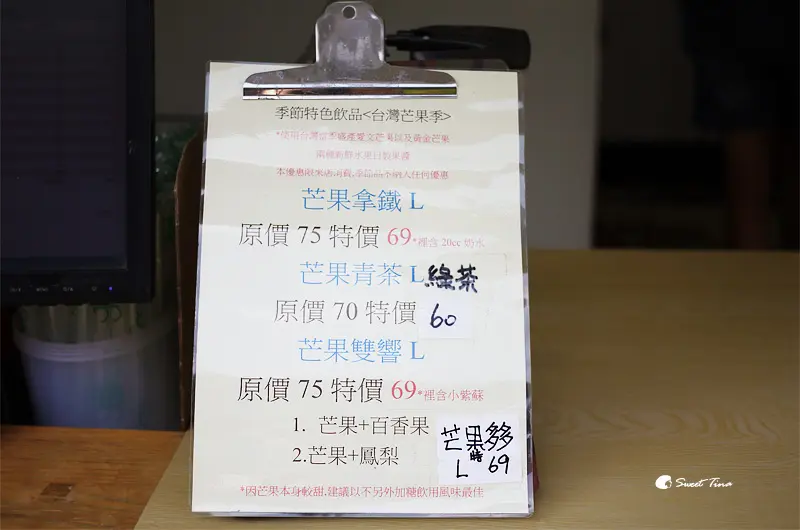 季節特色飲品<台灣芒果季>
*使用台灣當季盛產愛文芒果以及黃金芒果
兩種新鮮水果自製果醬
本優惠限來店消費,季節品不納入任何優惠
芒果拿鐵 L
原價 75 特價 69 *裡含 20cc 奶水
芒果青茶 L 綠茶
原價 70 特價 60
芒果雙響 L
原價 75 特價 69 *裡含小紫蘇
1. 芒果+百香果
2.芒果+鳳梨
芒果多多
L 69
*因芒果本身較甜,建議以不另外加糖飲用風味最佳
Sweet Tina